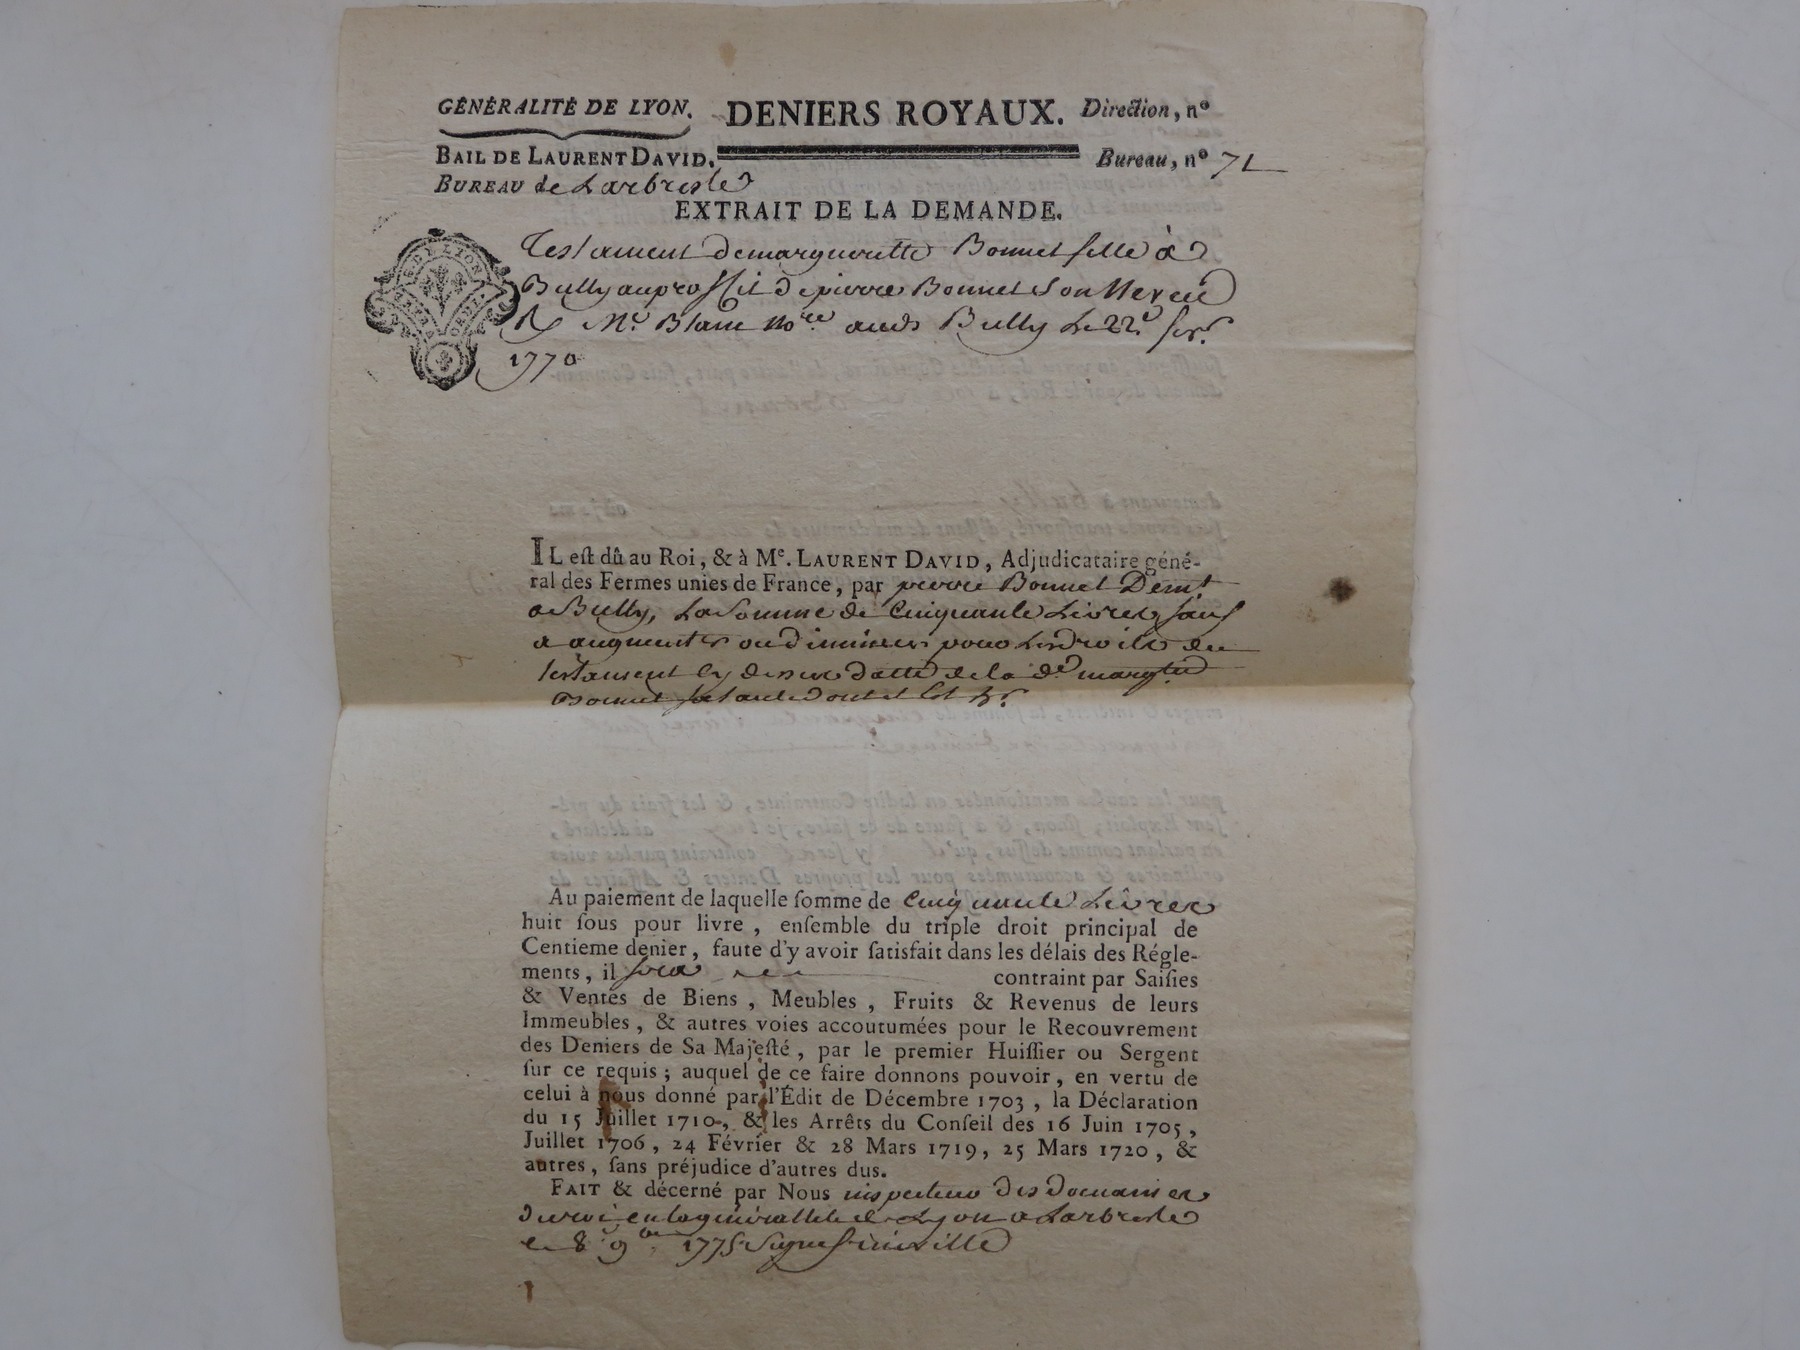 GÉNÉRALITÉ DE LYON. DENIERS ROYAUX. Direction, nº
BAIL DE LAURENT DAVID. Bureau, nº 71
BUREAU de Larbresle
EXTRAIT DE LA DEMANDE.
Testament de margueritte Bonnet fille à
Bully au proffit de pierre Bonnet Son Neveu
R Me. Blanc Nore. aud. Bully Le 22e fevr.
1770
DE LYON
IL eſt dû au Roi, & à Me. LAURENT DAVID, Adjudicataire géné-
ral des Fermes unies de France, par pierre Bonnet Demt.
a Bully, La Somme de Cinquante Livres sauf
a augmenter ou diminuer pour Les droits du
testament cy dessus datté de la de. margte.
Bonnet sa tante dont il Est
Au paiement de laquelle ſomme de Cinquante Livres
huit ſous pour livre, enſemble du triple droit principal de
Centieme denier, faute d'y avoir ſatisfait dans les délais des Régle-
ments, il sera contraint par Saiſies
& Ventes de Biens, Meubles, Fruits & Revenus de leurs
Immeubles, & autres voies accoutumées pour le Recouvrement
des Deniers de Sa Majeſté, par le premier Huiſſier ou Sergent
ſur ce requis; auquel de ce faire donnons pouvoir, en vertu de
celui à nous donné par l'Édit de Décembre 1703, la Déclaration
du 15 Juillet 1710, & les Arrêts du Conſeil des 16 Juin 1705,
Juillet 1706, 24 Février & 28 Mars 1719, 25 Mars 1720, &
autres, ſans préjudice d'autres dus.
FAIT & décerné par Nous inspecteur des domaines
du roi en la généralité de Lyon a Larbresle
le 8 9bre. 1775 Signé